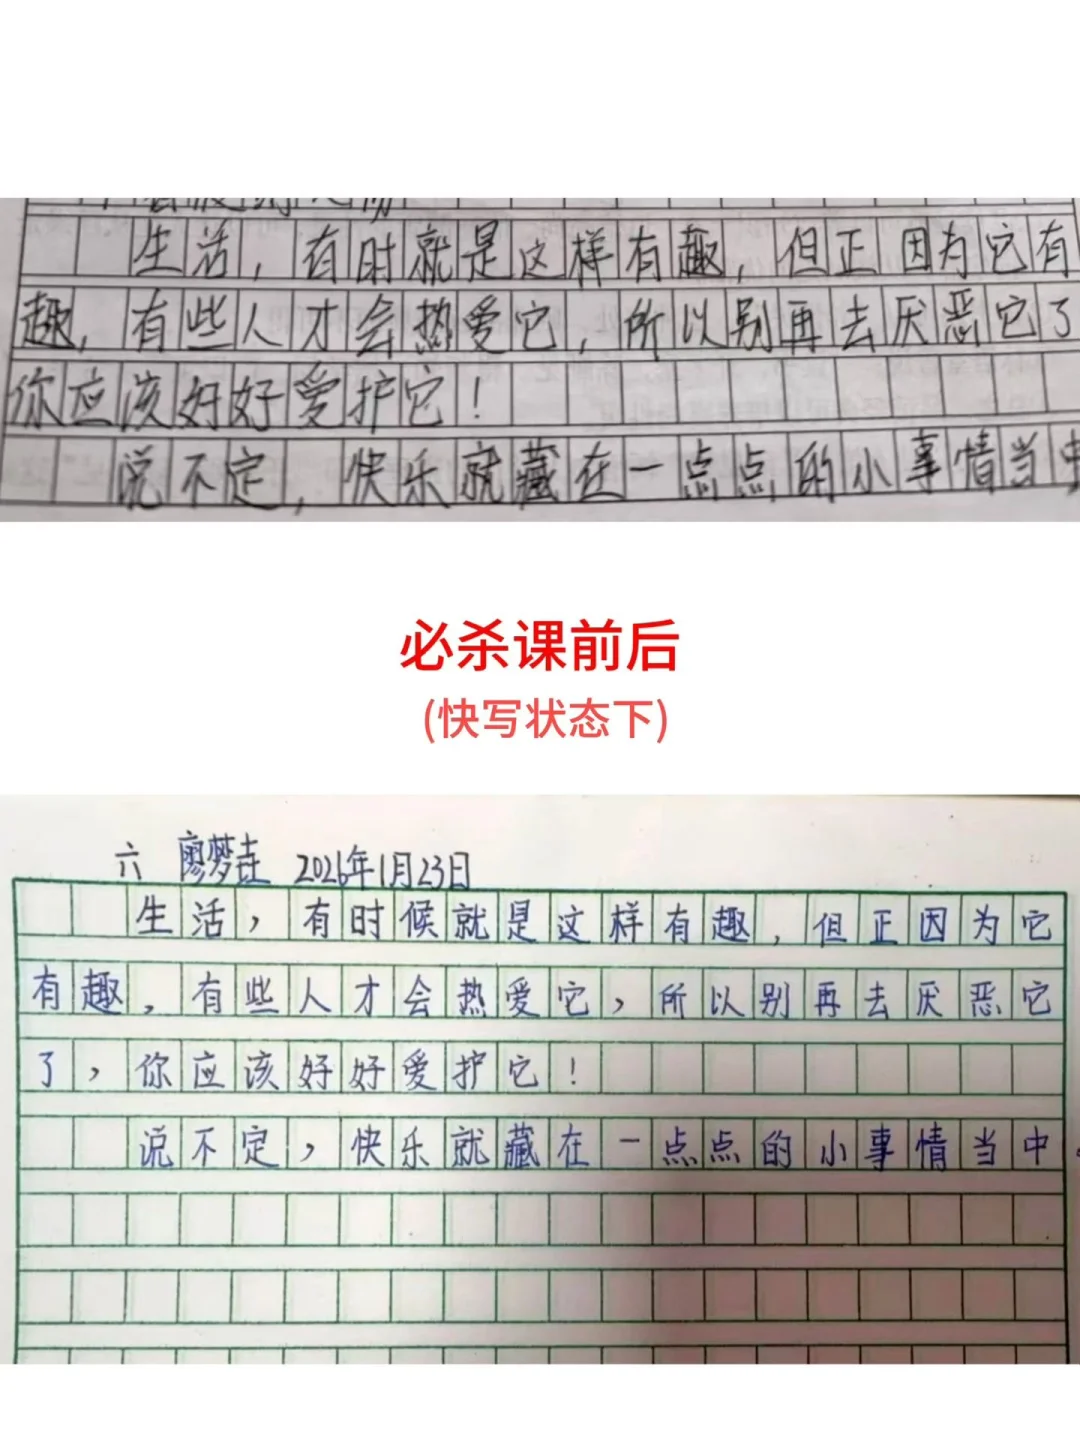 生活，有时就是这样有趣，但正因为它有
趣，有些人才会热爱它，所以别再去厌恶它了
你应该好好爱护它！
说不定，快乐就藏在一点点的小事情当中
必杀课前后
(快写状态下)
六 廖梦垚 2026年1月23日
生活，有时候就是这样有趣，但正因为它
有趣，有些人才会热爱它，所以别再去厌恶它
了，你应该好好爱护它！
说不定，快乐就藏在一点点的小事情当中。